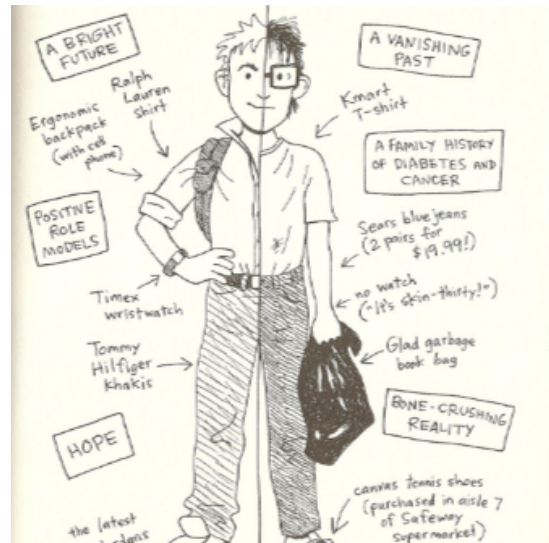 A BRIGHT
FUTURE
Ralph
Lauren
shirt
Ergonomic
backpack
(with cell
phone)
POSITIVE
ROLE
MODELS
Timex
wristwatch
Tommy
Hilfiger
khakis
HOPE
the latest
A VANISHING
PAST
Kmart
T-shirt
A FAMILY HISTORY
OF DIABETES AND
CANCER
Sears blue jeans
(2 pairs for
$19.99!)
no watch
("It's skin-thirty!")
Glad garbage
book bag
BONE-CRUSHING
REALITY
canvas tennis shoes
(purchased in aisle 7
of Safeway
supermarket)